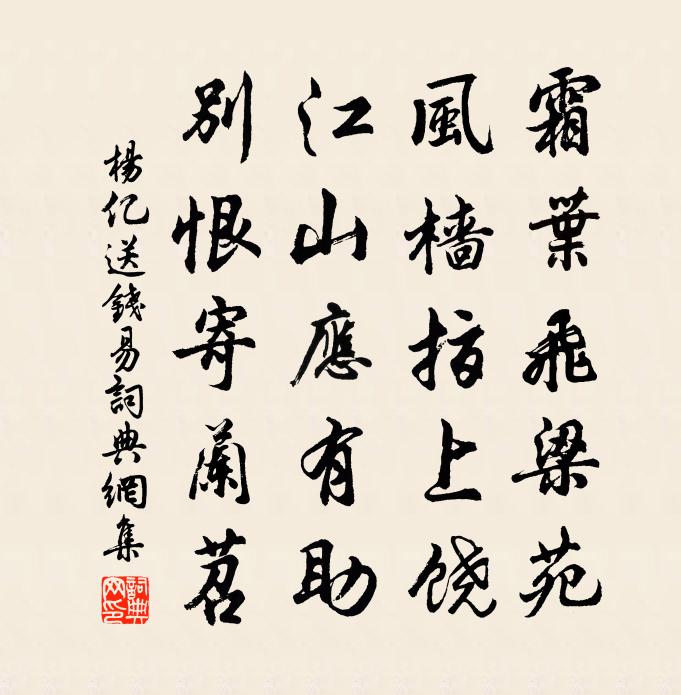 霜葉飛梁苑
風檣指上饶
江山應有助
別恨寄蘭苕
楊亿送錢易詞典網集
詞典网印